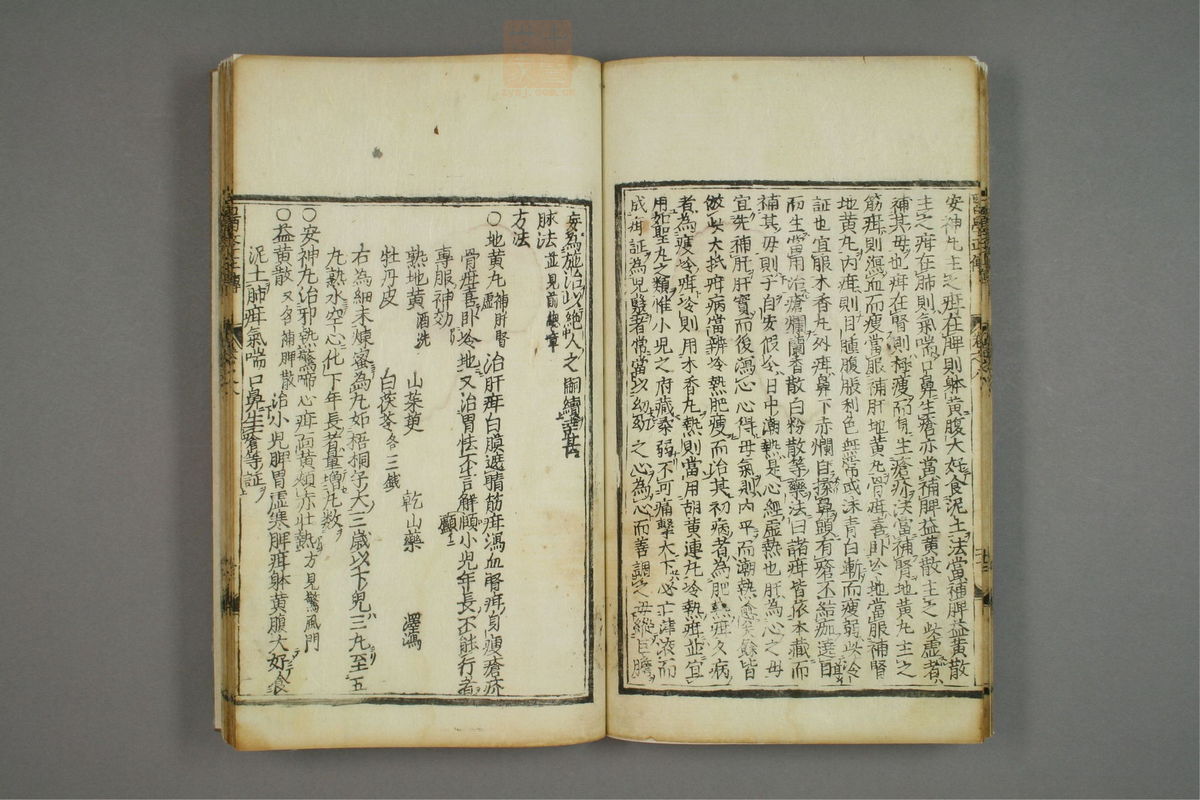 安神丸主之疳在脾則躰黄腹大好食泥土法當補脾益黄散
主之疳在肺則氣喘口鼻生瘡亦當補脾益黄散主之此虚者
補其母也疳在腎則極瘦而身生瘡疥法當補腎地黄丸主之
筋疳則瀉血而瘦當服補肝地黄丸骨疳喜卧冷地當服補腎
地黄丸内疳則目腫腹脹利色無常或沫青白漸而瘦弱此冷
証也宜服木香丸外疳鼻下赤爛自揉鼻頭有瘡不結痂遶目
而生當用治瘡爛蘭香散白粉散等藥法曰諸疳皆依本藏而
補其母則子自安假令日中潮熱是心經虚熱也肝為心之母
宜先補肝肝實而後瀉心心得母氣則内平而潮熱愈矣餘皆
倣此大抵疳病當辨冷熱肥瘦而治其初病者為肥熱疳久病
者為瘦冷疳冷則用木香丸熱則當用胡黄連丸冷熱疳並宜
用如聖丸之類惟小児之府藏柔弱不可痛擊大下必亡津液而
成疳証為児醫者常當以幼幼之心為心而善調之毋縱巨膽
妄為施治以絶人之嗣續甚
脉法 並見前總章
方法
〇地黄丸 補肝腎虚 治肝疳白膜遮睛筋疳瀉血腎疳身瘦瘡疥
骨疳喜卧冷地又治胃怯不言解顱小児年長不能行者
專服神効 顱
熟地黄 酒洗 山茱萸 乾山藥 澤瀉
牡丹皮 白茯苓各三錢
右為細末煉蜜為丸如梧桐子大三歳以下兒三丸至五
九熱水空心化下年長者量增丸数
〇安神丸治邪熱驚啼心疳面黄頰赤壮熱 方見驚風門
〇益黄散 又名補脾散 治小児脾胃虚寒脾疳躰黄腹大好食
泥土肺疳氣喘口鼻生瘡等証